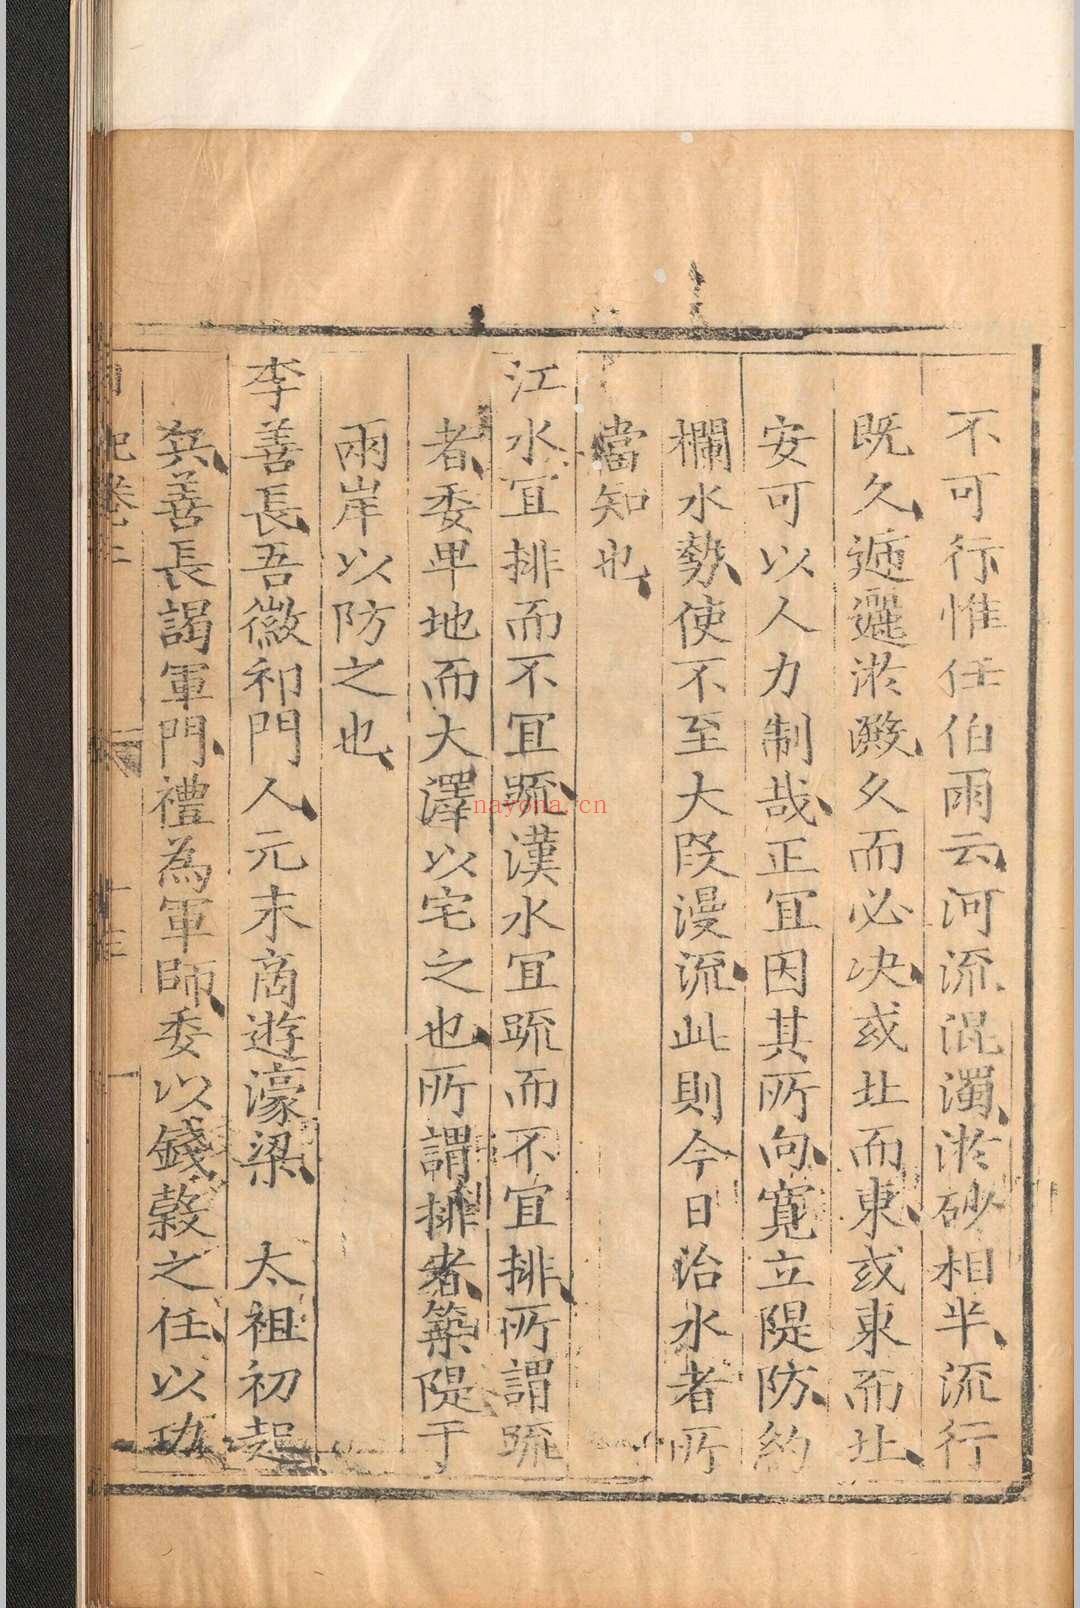 不可行惟任伯雨云河流混濁淤砂相半流行
既久迤邐淤澱久而必决或北而東或東而北
安可以人力制哉正宜因其所向寬立隄防約
欄水勢使不至大叚漫流此則今日治水者所
當知也
江水宜排而不宜䟽漢水宜䟽而不宜排所謂䟽
者委卑地而大澤以宅之也所謂排者築隄于
兩岸以防之也
李善長吾徽祁門人元末商遊濠梁 太祖初起
兵善長謁軍門禮為軍師委以錢穀之任以功
nayona.cn